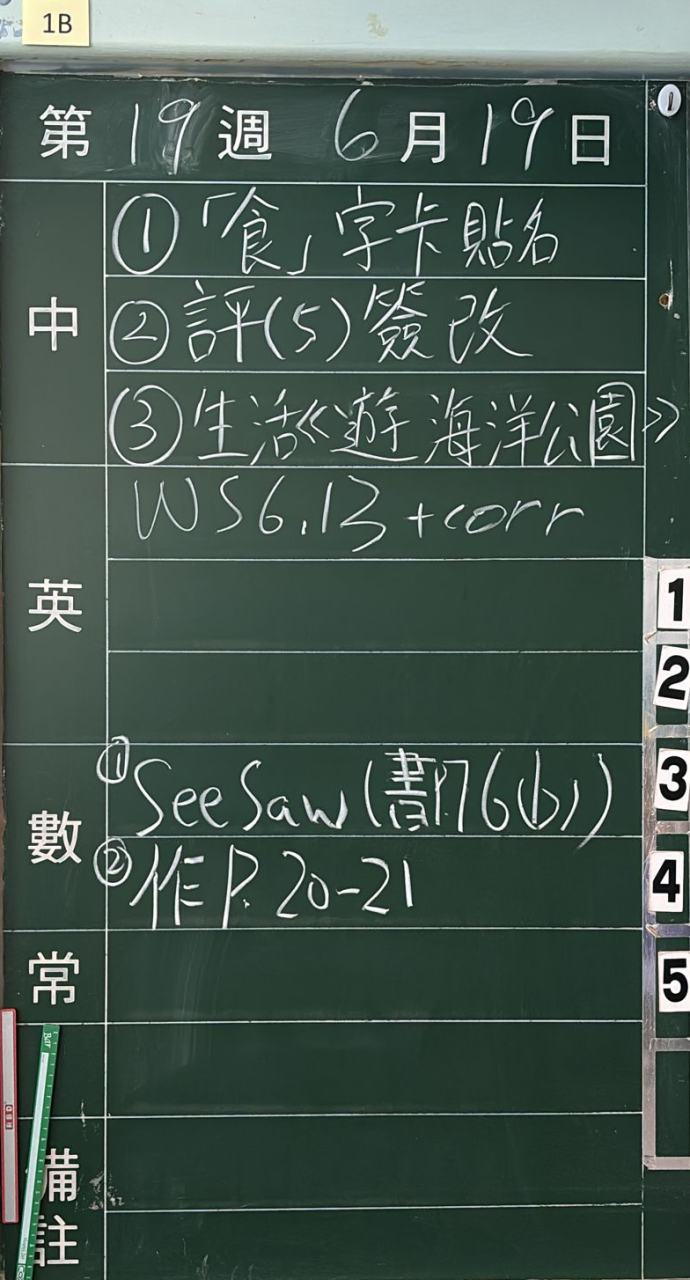 1B
第19週 6月19日
中
①「食」字卡貼名
②評(5)簽改
③生活《遊海洋公園》
英
WS6.13+corr
數
①SeeSaw(書P.76(b))
②作P.20-21
常
備註
1
2
3
4
5